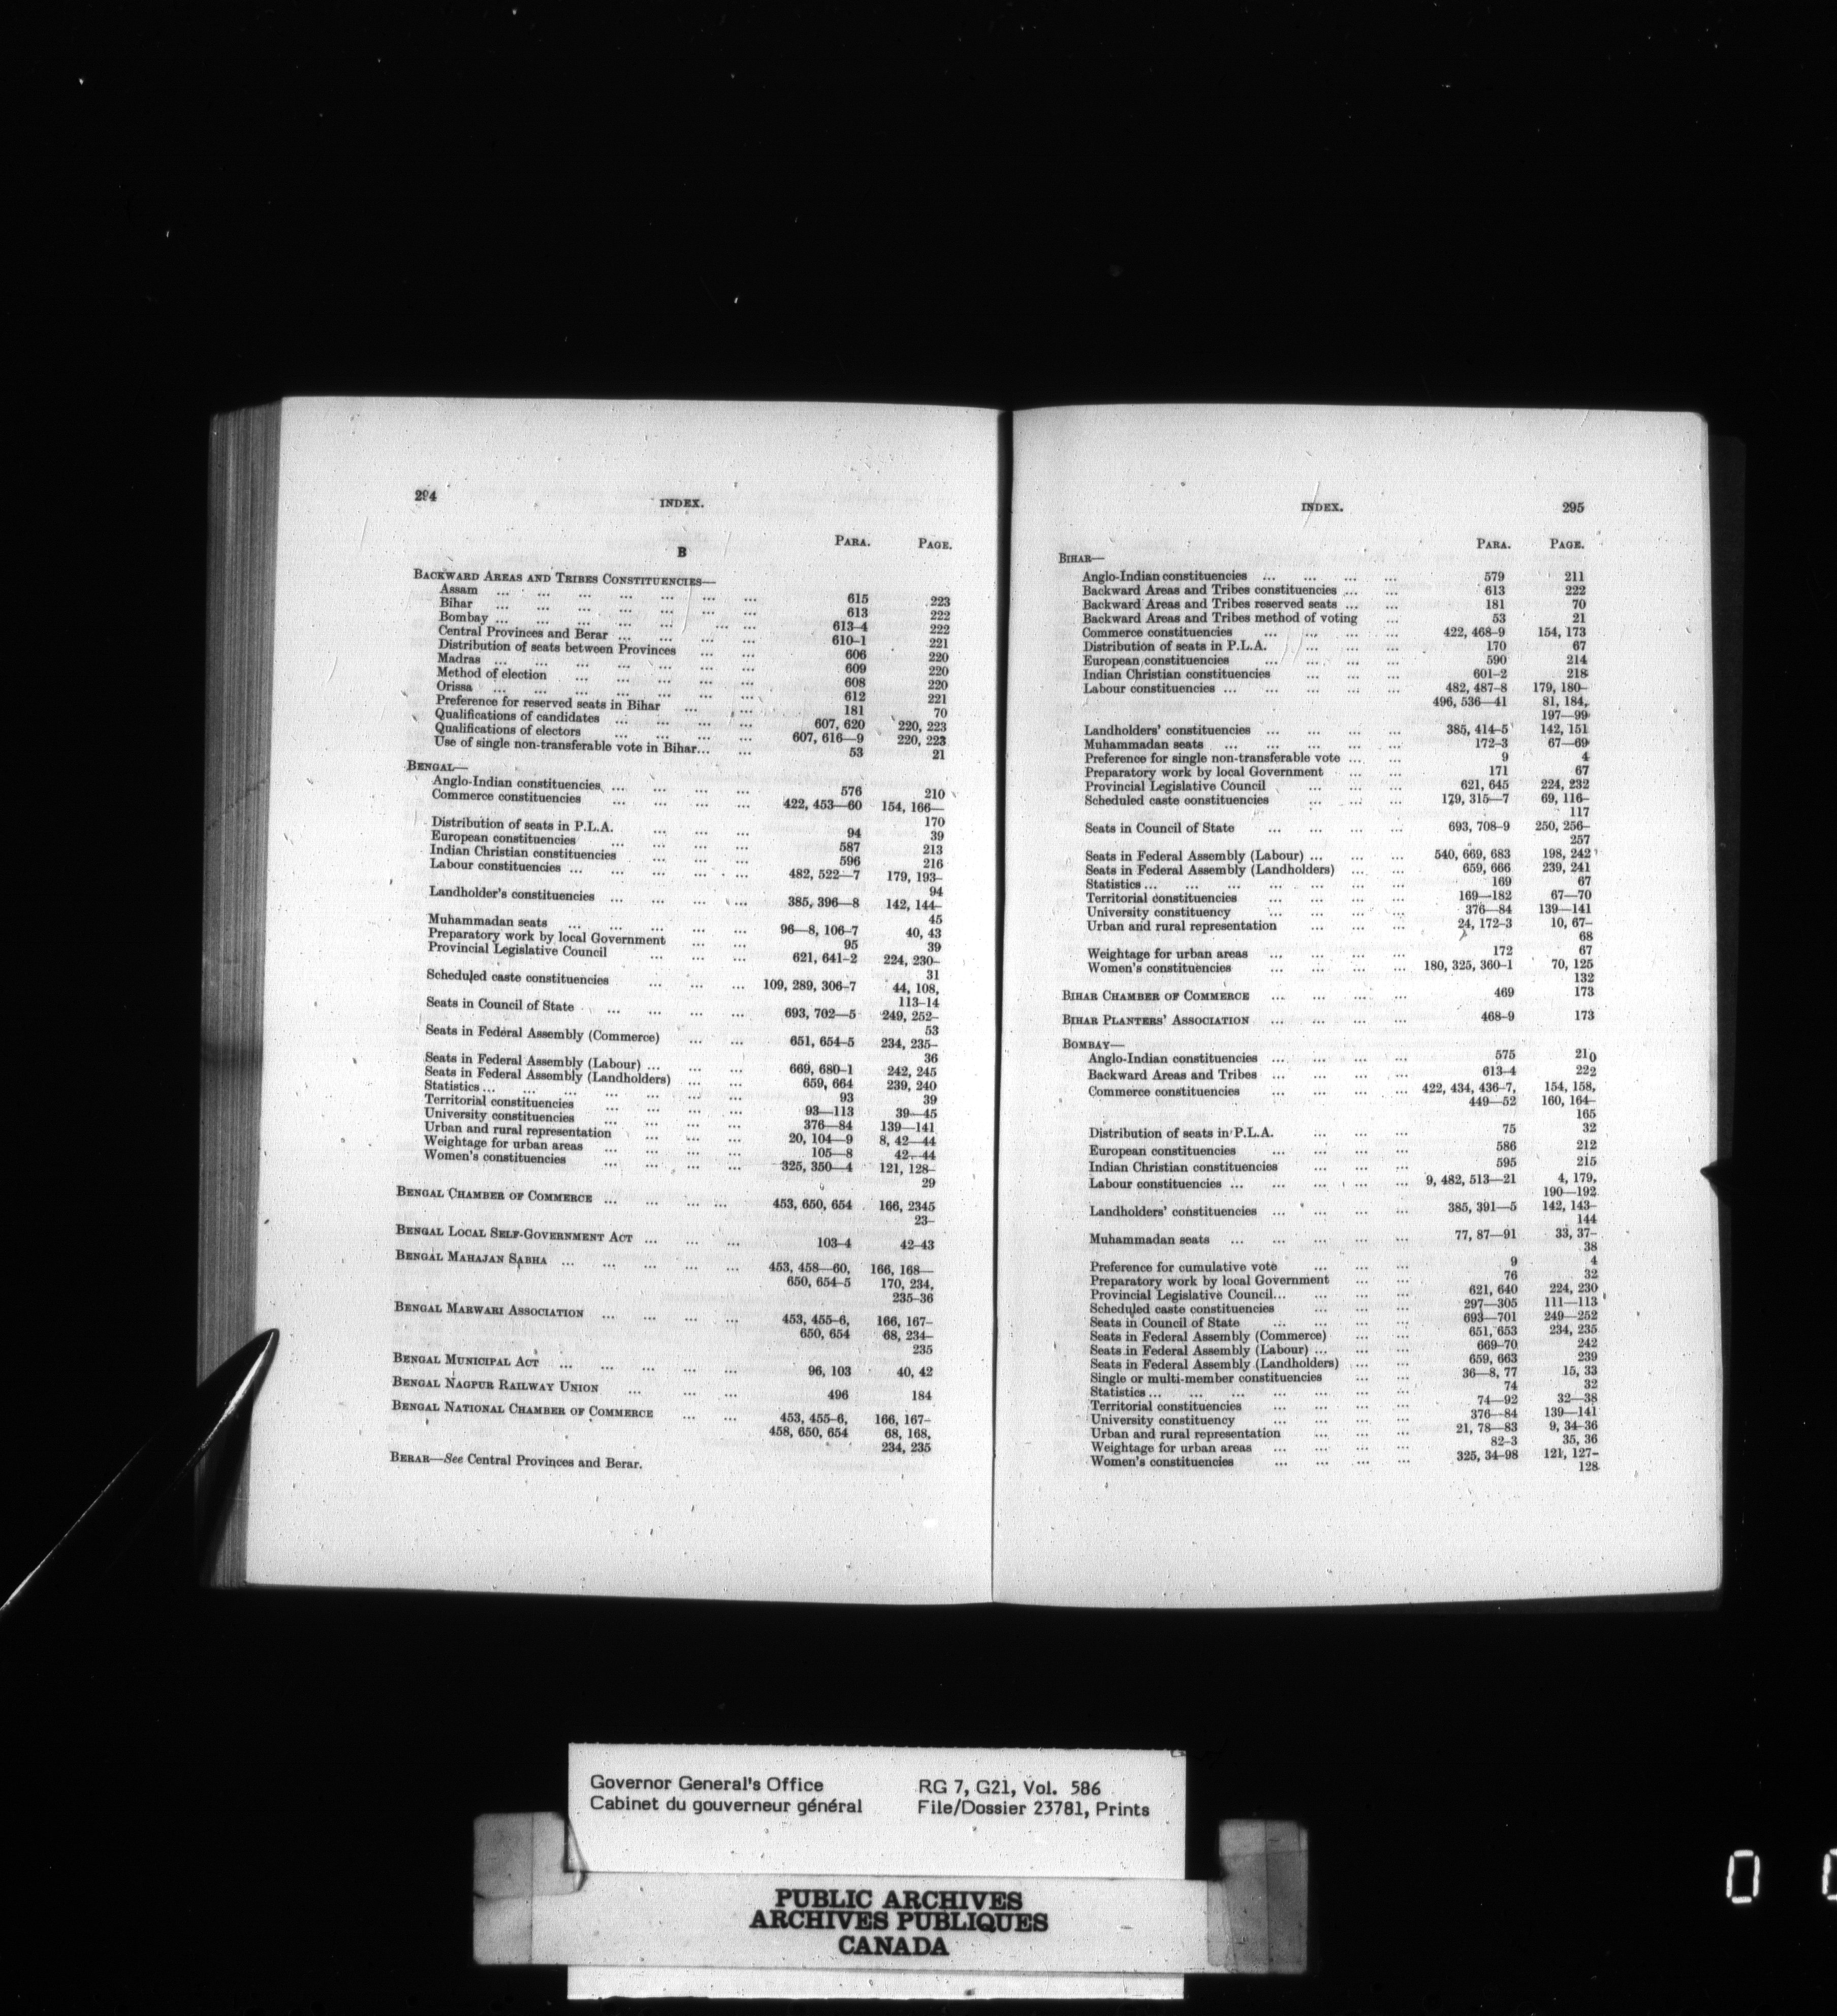 294
INDEX.
B
PARA. PAGE.
BACKWARD AREAS AND TRIBES CONSTITUENCIES—
Assam ... ... ... ... ... ... ... 615 223
Bihar ... ... ... ... ... ... ... 613 222
Bombay ... ... ... ... ... ... ... 613-4 222
Central Provinces and Berar ... ... ... ... 610-1 221
Distribution of seats between Provinces ... ... 606 220
Madras ... ... ... ... ... ... ... 609 220
Method of election ... ... ... ... ... 608 220
Orissa ... ... ... ... ... ... ... 612 221
Preference for reserved seats in Bihar ... ... 181 70
Qualifications of candidates ... ... ... ... 607, 620 220, 223
Qualifications of electors ... ... ... ... 607, 616—9 220, 223
Use of single non-transferable vote in Bihar... ... 53 21
BENGAL—
Anglo-Indian constituencies ... ... ... ... 576 210
Commerce constituencies ... ... ... ... 422, 453—60 154, 166—
170
Distribution of seats in P.L.A. ... ... ... 94 39
European constituencies ... ... ... ... 587 213
Indian Christian constituencies ... ... ... 596 216
Labour constituencies ... ... ... ... ... 482, 522—7 179, 193-
94
Landholder's constituencies ... ... ... ... 385, 396—8 142, 144-
45
Muhammadan seats ... ... ... ... ... 96—8, 106-7 40, 43
Preparatory work by local Government ... ... 95 39
Provincial Legislative Council ... ... ... 621, 641-2 224, 230-
31
Scheduled caste constituencies ... ... ... 109, 289, 306-7 44, 108,
113-14
Seats in Council of State ... ... ... ... 693, 702—5 249, 252-
53
Seats in Federal Assembly (Commerce) ... ... 651, 654-5 234, 235-
36
Seats in Federal Assembly (Labour) ... ... ... 669, 680-1 242, 245
Seats in Federal Assembly (Landholders) ... ... 659, 664 239, 240
Statistics ... ... ... ... ... ... ... 93 39
Territorial constituencies ... ... ... ... 93—113 39—45
University constituencies ... ... ... ... 376—84 139—141
Urban and rural representation ... ... ... 20, 104—9 8, 42—44
Weightage for urban areas ... ... ... ... 105—8 42—44
Women's constituencies ... ... ... ... 325, 350—4 121, 128-
29
BENGAL CHAMBER OF COMMERCE ... ... ... ... 453, 650, 654 166, 2345
23-
BENGAL LOCAL SELF-GOVERNMENT ACT ... ... ... 103-4 42-43
BENGAL MAHAJAN SABHA ... ... ... ... ... 453, 458—60, 166, 168—
650, 654-5 170, 234,
235-36
BENGAL MARWARI ASSOCIATION ... ... ... ... 453, 455-6, 166, 167-
650, 654 68, 234-
235
BENGAL MUNICIPAL ACT ... ... ... ... ... 96, 103 40, 42
BENGAL NAGPUR RAILWAY UNION ... ... ... 496 184
BENGAL NATIONAL CHAMBER OF COMMERCE ... ... 453, 455-6, 166, 167-
458, 650, 654 68, 168,
234, 235
BERAR—See Central Provinces and Berar.
INDEX. 295
PARA. PAGE.
BIHAR—
Anglo-Indian constituencies ... ... ... ... 579 211
Backward Areas and Tribes constituencies ... ... 613 222
Backward Areas and Tribes reserved seats ... ... 181 70
Backward Areas and Tribes method of voting ... 53 21
Commerce constituencies ... ... ... ... 422, 468-9 154, 173
Distribution of seats in P.L.A. ... ... ... 170 67
European constituencies ... ... ... ... 590 214
Indian Christian constituencies ... ... ... 601-2 218
Labour constituencies ... ... ... ... ... 482, 487-8 179, 180-
496, 536—41 81, 184,
197—99
Landholders' constituencies ... ... ... ... 385, 414-5 142, 151
Muhammadan seats ... ... ... ... ... 172-3 67—69
Preference for single non-transferable vote ... ... 9 4
Preparatory work by local Government ... ... 171 67
Provincial Legislative Council ... ... ... 621, 645 224, 232
Scheduled caste constituencies ... ... ... 179, 315—7 69, 116-
117
Seats in Council of State ... ... ... ... 693, 708-9 250, 256-
257
Seats in Federal Assembly (Labour) ... ... ... 540, 669, 683 198, 242
Seats in Federal Assembly (Landholders) ... ... 659, 666 239, 241
Statistics ... ... ... ... ... ... ... 169 67
Territorial constituencies ... ... ... ... 169—182 67—70
University constituency ... ... ... ... 376—84 139—141
Urban and rural representation ... ... ... 24, 172-3 10, 67-
68
Weightage for urban areas ... ... ... ... 172 67
Women's constituencies ... ... ... ... 180, 325, 360-1 70, 125
132
BIHAR CHAMBER OF COMMERCE ... ... ... ... 469 173
BIHAR PLANTERS' ASSOCIATION ... ... ... ... 468-9 173
BOMBAY—
Anglo-Indian constituencies ... ... ... ... 575 210
Backward Areas and Tribes ... ... ... ... 613-4 222
Commerce constituencies ... ... ... ... 422, 434, 436-7, 154, 158,
449—52 160, 164-
165
Distribution of seats in P.L.A. ... ... ... 75 32
European constituencies ... ... ... ... 586 212
Indian Christian constituencies ... ... ... 595 215
Labour constituencies ... ... ... ... ... 9, 482, 513—21 4, 179,
190—192
Landholders' constituencies ... ... ... ... 385, 391—5 142, 143-
144
Muhammadan seats ... ... ... ... ... 77, 87—91 33, 37-
38
Preference for cumulative vote ... ... ... 9 4
Preparatory work by local Government ... ... 76 32
Provincial Legislative Council... ... ... ... 621, 640 224, 230
Scheduled caste constituencies ... ... ... 297—305 111—113
Seats in Council of State ... ... ... ... 693—701 249—252
Seats in Federal Assembly (Commerce) ... ... 651, 653 234, 235
Seats in Federal Assembly (Labour) ... ... ... 669-70 242
Seats in Federal Assembly (Landholders) ... ... 659, 663 239
Single or multi-member constituencies ... ... 36—8, 77 15, 33
Statistics ... ... ... ... ... ... ... 74 32
Territorial constituencies ... ... ... ... 74—92 32—38
University constituency ... ... ... ... 376—84 139—141
Urban and rural representation ... ... ... 21, 78—83 9, 34-36
Weightage for urban areas ... ... ... ... 82-3 35, 36
Women's constituencies ... ... ... ... 325, 34-98 121, 127-
128
Governor General's Office RG 7, G21, Vol. 586
Cabinet du gouverneur général File/Dossier 23781, Prints
PUBLIC ARCHIVES
ARCHIVES PUBLIQUES
CANADA
0